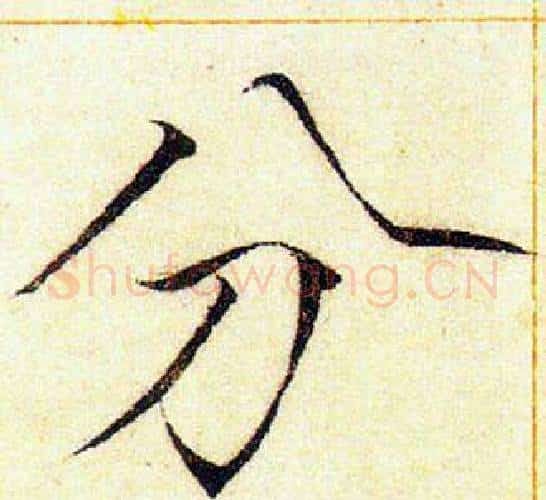 分
Shufawang.CN